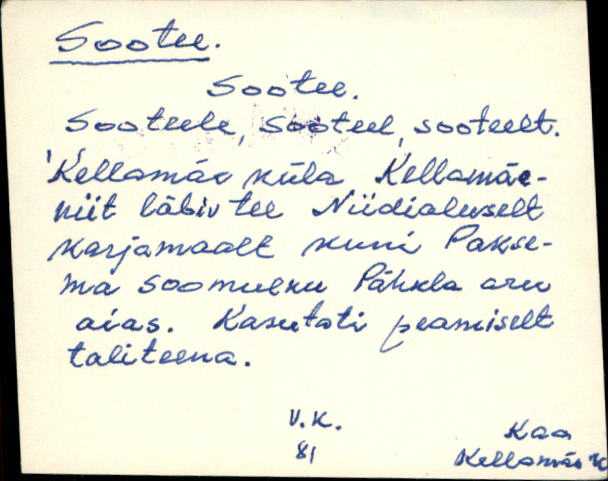 Sootee.
Sootee.
Sooteele, sooteel, sooteelt.
Kellamäe küla Kellamäe-
niit läbiv tee Niidialuselt
karjamaalt kuni Pakse-
ma soomulku Pähkla aru
aias. Kasutati peamiselt
taliteena.
V.K.
81
Kaa
Kellamäe k